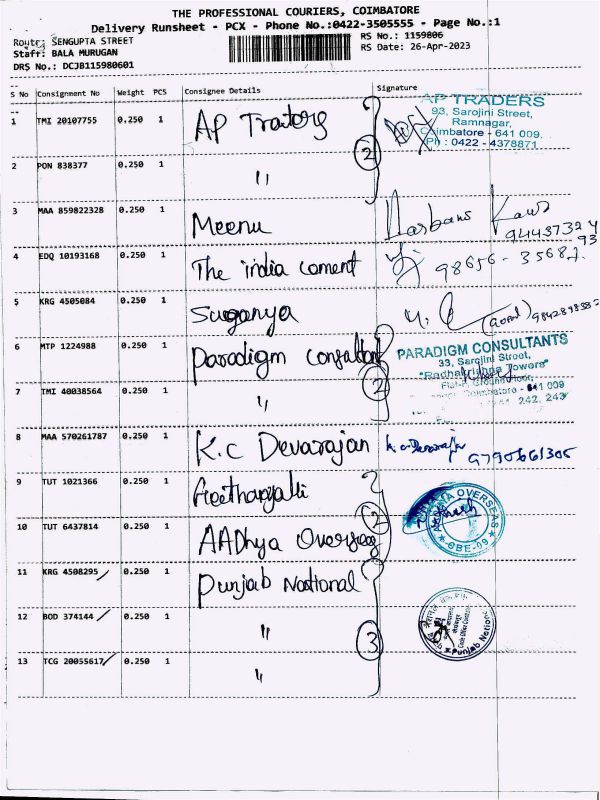 THE PROFESSIONAL COURIERS, COIMBATORE
Delivery Runsheet - PCX - Phone No.:0422-3505555 - Page No.:1
Route: SENGUPTA STREET
Staff: BALA MURUGAN
DRS No.: DCJB115980601
RS No.: 1159806
RS Date: 26-Apr-2023
S No Consignment No Weight PCS Consignee Details Signature
1 TMI 20107755 0.250 1 AP Trators
AP TRADERS
93, Sarojini Street,
Ramnagar,
Coimbatore - 641 009.
Ph : 0422 - 4378871
2 PON 838377 0.250 1 " 2
3 MAA 859822328 0.250 1 Meenu Harbans Kaur
4 EDQ 10193168 0.250 1 The india coment
5 KRG 4505084 0.250 1 Suganya
6 MTP 1224988 0.250 1 Paradigm
PARADIGM CONSULTANTS
33, Sarojini Street,
"Radhakrishna Towers"
Ground Floor,
Coimbatore - 641 009
242, 243
7 TMI 40038564 0.250 1 " 2
8 MAA 570261787 0.250 1 K.C Devarajan K.C. Devarajan 9790661305
9 TUT 1021366 0.250 1
10 TUT 6437814 0.250 1 AADhya Overseas 2
OVERSEAS
CBE-09
11 KRG 4508295 0.250 1 Punjab National
12 BOD 374144 0.250 1 " 3
Punjab Nation
13 TCG 20055617 0.250 1 "